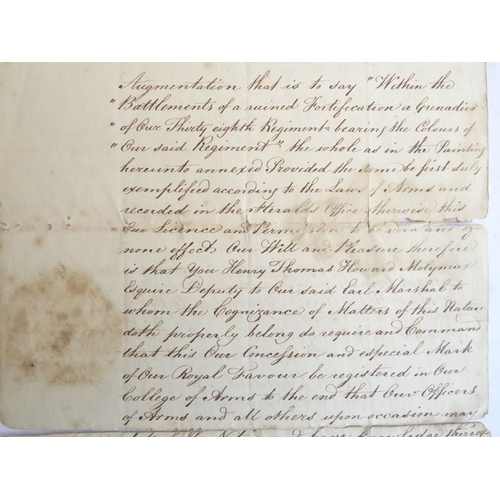 Augmentation that is to say "Within the
"Battlements of a ruined Fortification a Grenadier
"of Our Thirty eighth Regiment bearing the Colours of
"Our said Regiment" the whole as in the Painting
hereunto annexed Provided the same be first duly
exemplified according to the Laws of Arms and
recorded in the Heralds Office otherwise this
Our Licence and Permission to be void and of
none effect. Our Will and Pleasure therefore
is that You Henry Thomas Howard Molyneux
Esquire Deputy to Our said Earl Marshal to
whom the Cognizance of Matters of this Nature
doth properly belong do require and Command
that this Our Concession and especial Mark
of Our Royal Favour be registered in Our
College of Arms to the end that Our Officers
of Arms and all others upon occasion may
have knowledge thereof